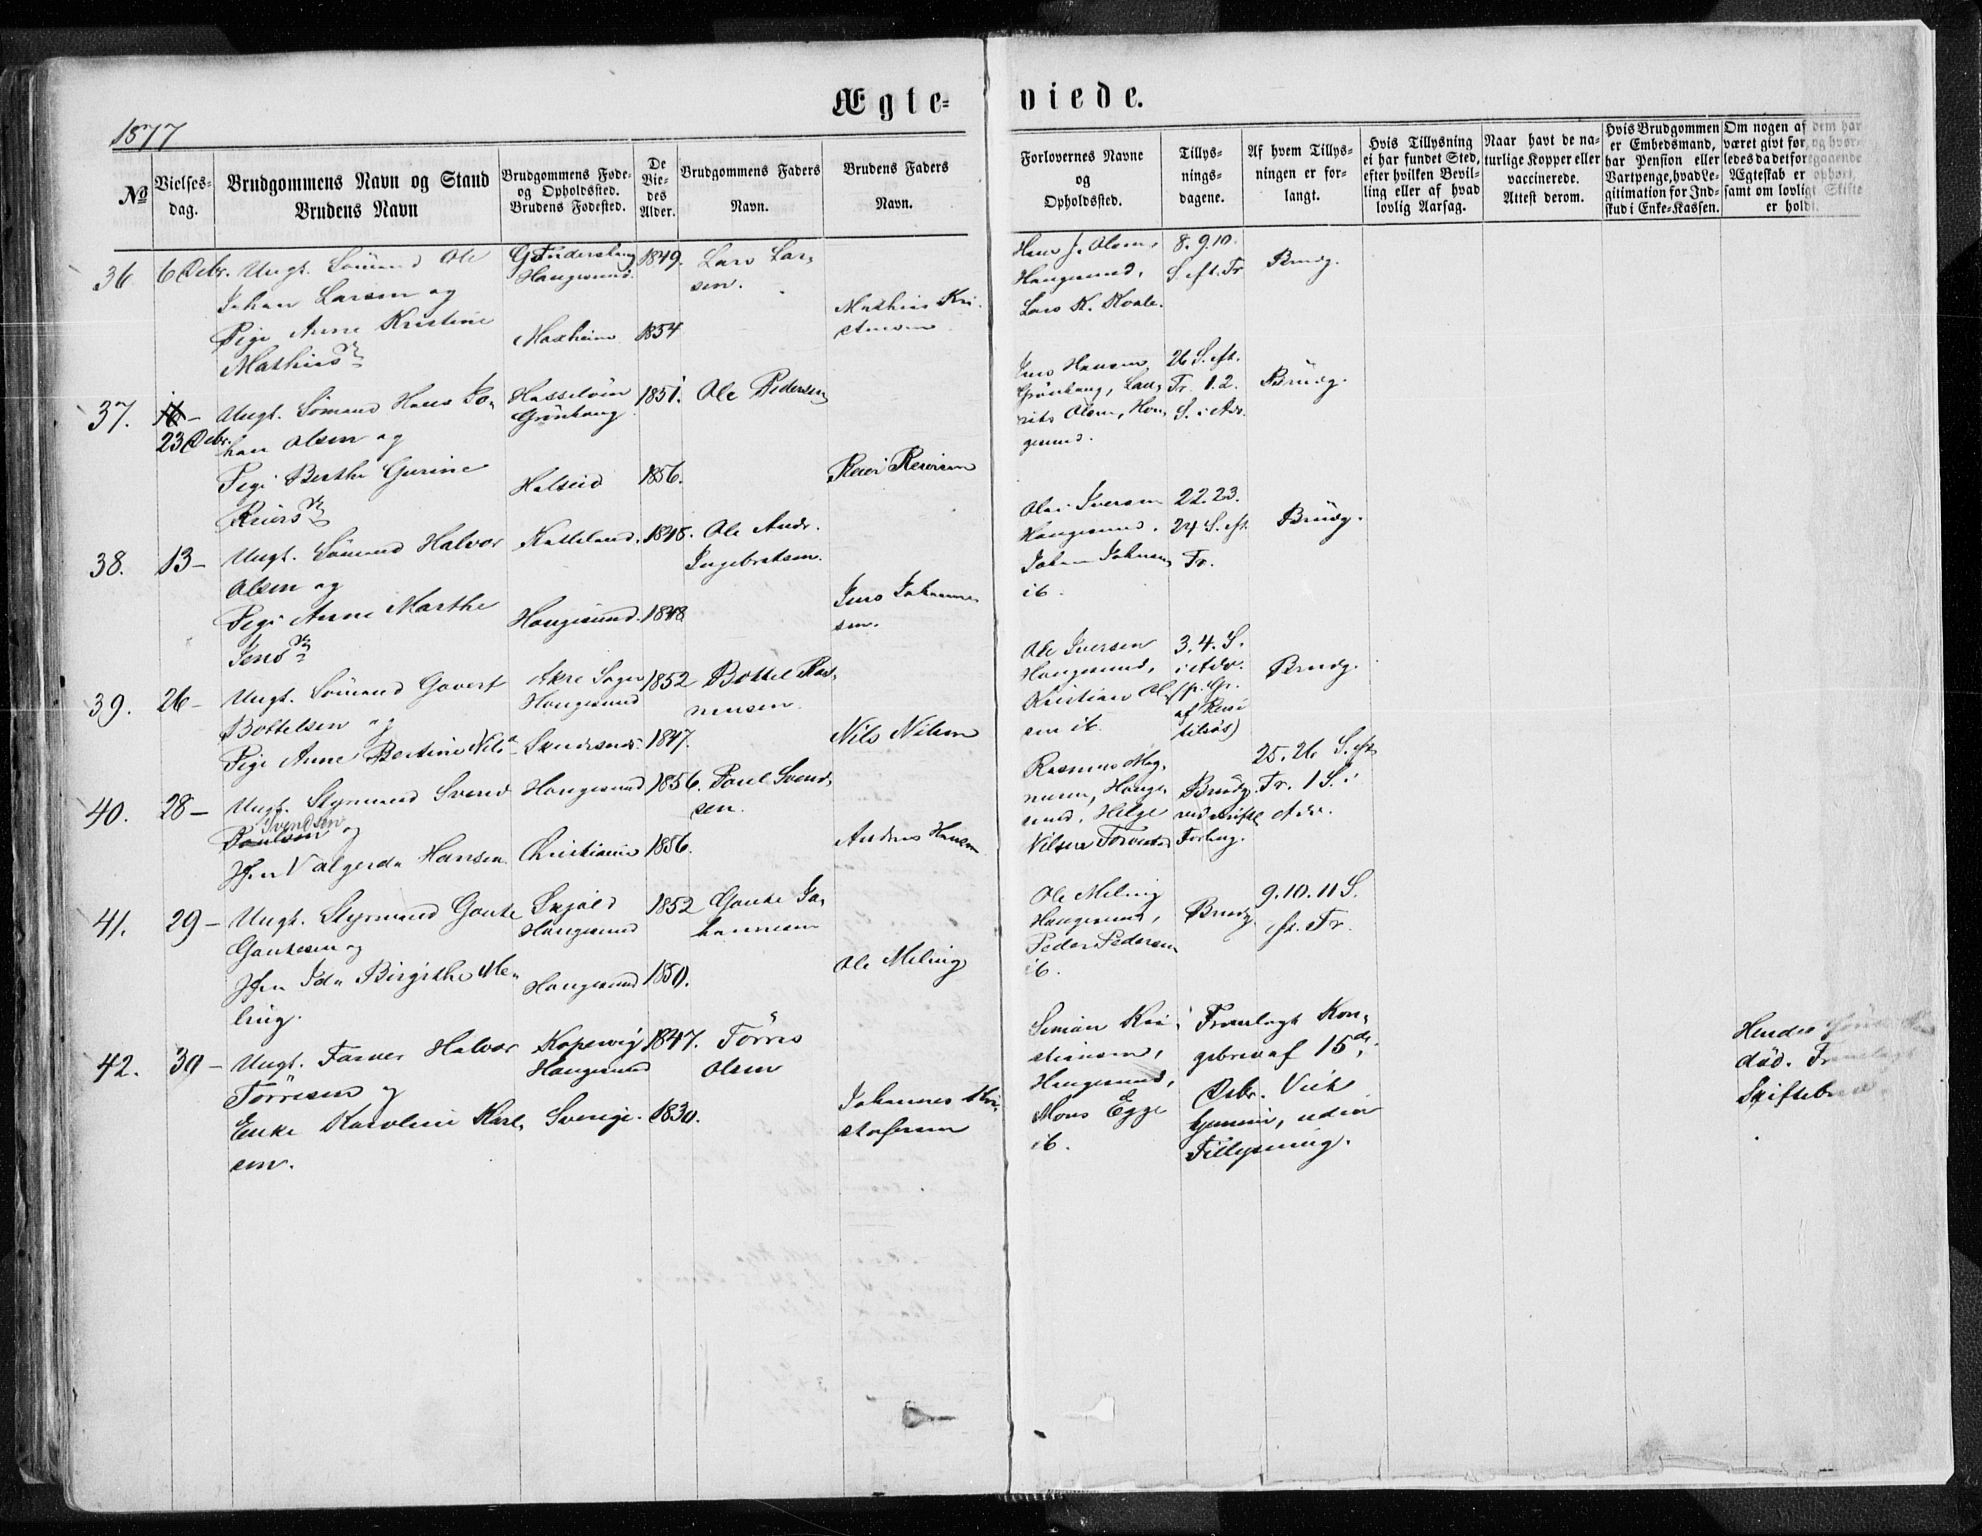 Ægte-
viede.
1877
No
Vielses-
dag.
Brudgommens Navn og Stand
Brudens Navn
Brudgommens Føde-
og Opholdssted.
Brudens Fødested.
De
Vie-
des
Alder.
Brudgommens Faders
Navn.
Brudens Faders
Navn.
Forlovernes Navne
og
Opholdssted.
Tillys-
nings-
dagene.
Af hvem Tillys-
ningen er for-
langt.
Hvis Tillysning
ei har fundet Sted,
efter hvilken Bevil-
ling eller af hvad
lovlig Aarsag.
Naar havt de na-
turlige Kopper eller
vaccinerede.
Attest derom.
Hvis Brudgommen
er Embedsmand,
har Pension eller
Vartpenge, hvad Le-
gitimation for Ind-
skud i Enke-Kassen.
Om nogen af dem har
været givt før, og hvor-
ledes da det foregaaende
Ægteskab er ophørt,
samt om lovligt Skifte
er holdt.
36
6 Debr.
Ungk. Sömand Ole
Johan Larsen og
Pige Anne Kristine
Mathiasdr
Haugesund
1849.
1854
Lars Lar-
sen.
Mathias Kri-
stensen
Hans J. Olsen,
Haugesund,
Lars K. Kvale.
8. 9. 10.
S. eft. Tr
Brudg.
37.
23 Debr.
Ungk. Sömand Hans Jo-
han Olsen og
Pige Berthe Gurine
Reiersdr
Grönhaug
Halseid
1851.
1856.
Ole Pedersen
Reier Reiersen
Jens Hansen
Grönhaug, Lau-
rits Olsen, Hau-
gesund.
26 S. eft.
Tr. 1. 2.
S. i Adv.
Brudg.
38.
13 –
Ungk. Sömand Halvor
Olsen og
Pige Anne Marthe
Jensdr
Kalleland.
Haugesund.
1848.
1848
Ole Andr.
Ingebretsen.
Jens Johanne-
sen.
Ole Iversen
Haugesund.
Johan Johnsen
ib.
22. 23.
24 S. eft.
Tr.
Brudg.
39.
26 –
Ungk. Sömand Govert
Bottelsen og
Pige Anne Bertine Nilsd
Akre Sogn
Haugesund
Skudesnes.
1852
1847.
Bottel Ras-
mussen
Nils Nilsen
Ole Iversen
Haugesund,
Kristian Ol-
sen ib.
3. 4. S.
i Adv.
Brudg.
40.
28 –
Ungk. Styrmand Svend
Svendsen
Paulsen og
Jfr. Valgerda Hansen
Haugesund
Christiania
1856.
1856.
Paul Svend-
sen.
Andreas Hansen
Rasmus Mag-
nusen, Hauge-
sund, Helge
Nilsen
Brudg.
ved skriftl
Forlang.
25. 26. S. eft
Tr. 1 S. i
Adv.
41.
29 –
Ungk. Styrmand Gaute
Gautesen og
Jfr. Ida Birgithe Me-
ling.
Skjold
Haugesund
Haugesund
1852
1850.
Gaute Jo-
hannesen
Ole Meling
Ole Meling
Haugesund,
Peder Pedersen
ib.
Brudg
9. 10. 11 S.
eft. Tr.
42.
30 –
Ungk. Farver Halvor
Törresen og
Enke Karoline Karl-
sen.
Kopervig
Haugesund
Sverige.
1847.
1830.
Törres
Olsen
Johannes Kri-
stofersen
Simon Kri-
stiansen,
Haugesund,
Mons Egge
ib.
Fremlagt Kon-
gebrev af 15de
Debr. Viet
hjemme, uden
Tillysning.
Hendes
död. Fremlagt
Skiftebrev.